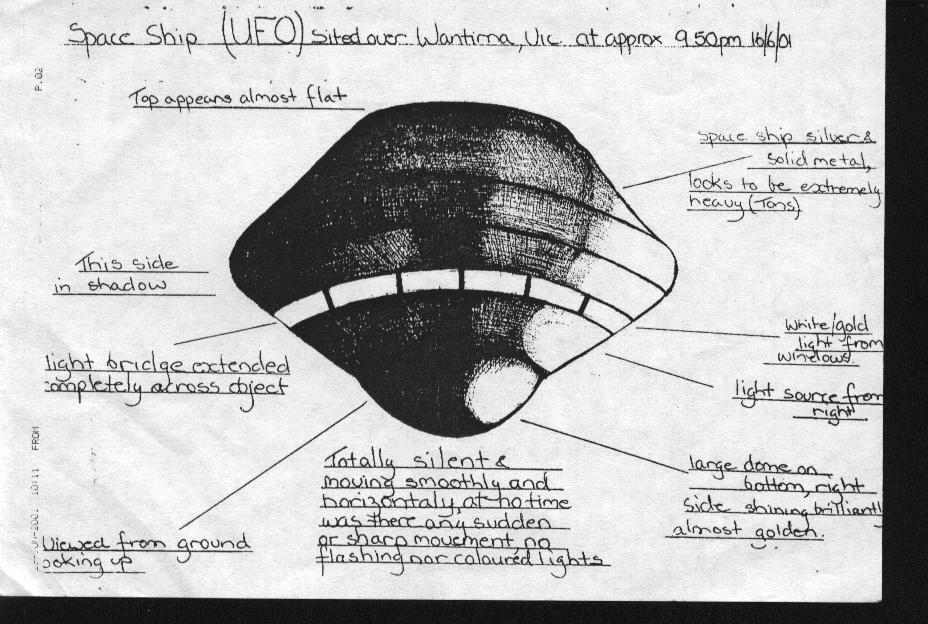 Space Ship (UFO) Sited over Wantirna, Vic. at approx 9.50pm 16/6/01
P.02
Top appears almost flat
Space ship silver &
solid metal,
looks to be extremely
heavy (Tons)
This side
in shadow
light bridge extended
completely across object
white/gold
light from
windows.
light source from
right
large dome on
bottom, right
side shining brilliantl
almost golden.
Totally silent &
moving smoothly and
horizontaly, at no time
was there any sudden
or sharp movement, no
flashing nor coloured lights
Viewed from ground
ooking up
-2001 10:11 FROM